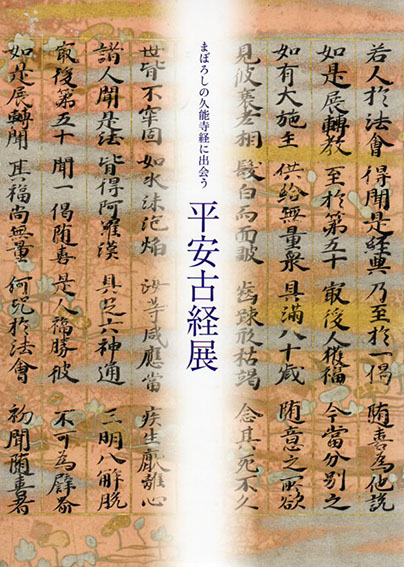 若人於法會 得聞是經典 乃至於一偈 随喜為他説
如是展轉教 至於第五十 冣後人獲福 今當分別之
如有大施主 供給無量衆 具滿八十歳 随意之所欲
見彼衰老相 髮白而面皺 齒踈形枯竭 念其死不久
まぼろしの久能寺経に出会う
平安古経展
世皆不牢固 如水沫泡焔 汝等咸應當 疾生厭離心
諸人聞是法 皆得阿羅漢 具足六神通 三明八解脱
冣後第五十 聞一偈随喜 是人福勝彼 不可為譬喩
如是展轉聞 其福尚無量 何況於法會 初聞随喜者